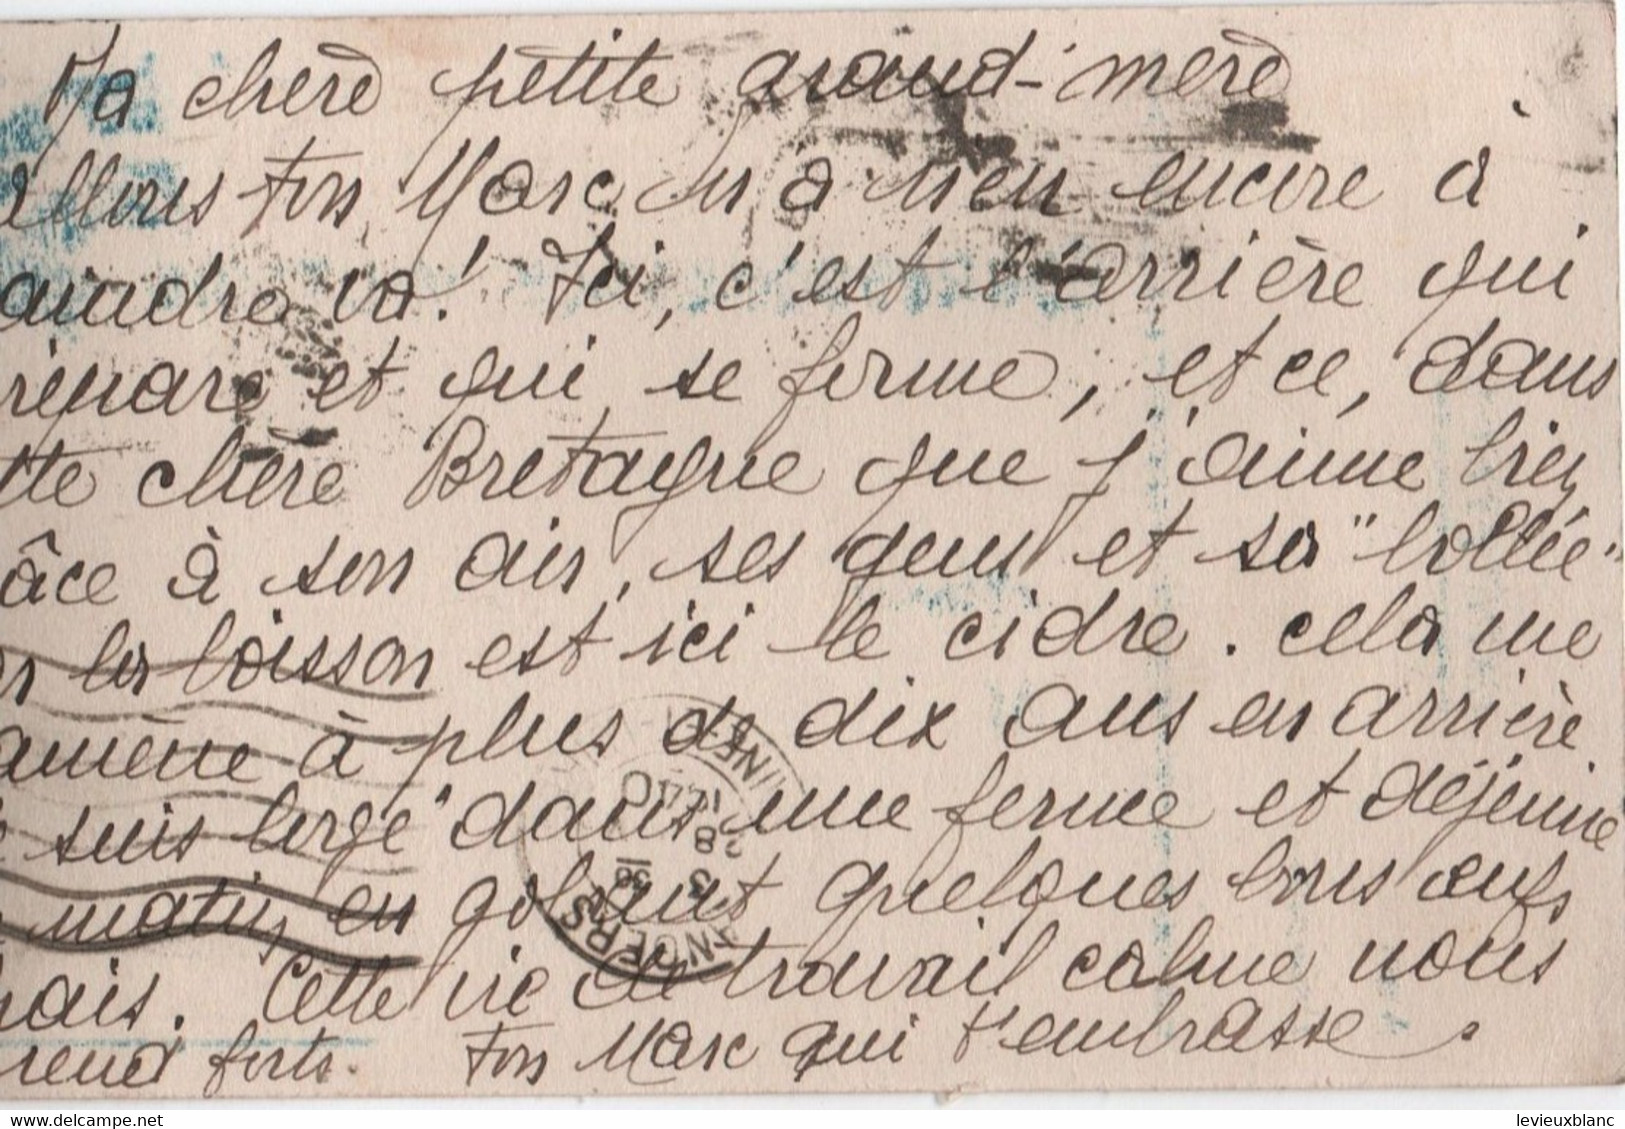 Ma chère petite grand-mère
allons ton Marc n'a rien encore à
aindre va! Ici, c'est l'arrière qui
répare et qui se forme, et ce, dans
tte chère Bretagne que j'aime bien
âce à son air, ses gens et sa "bollée"
la boisson est ici le cidre. Cela me
amène à plus de dix ans en arrière
suis logé dans une ferme et déjeune
matin en gobant quelques bons œufs
ais. Cette vie de travail calme nous
rend forts. Ton Marc qui t'embrasse.
ANGERS
levieuxblanc
www.delcampe.net